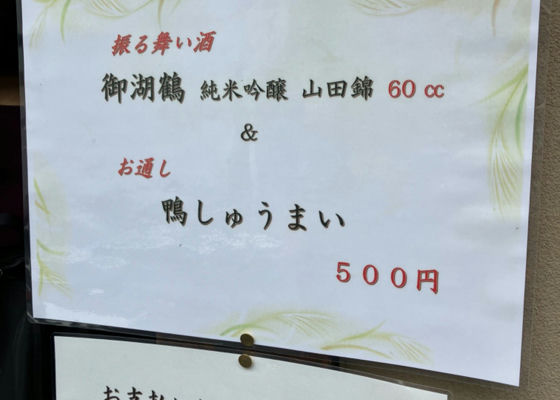 振る舞い酒
御湖鶴 純米吟醸 山田錦 60㏄
&
お通し
鴨しゅうまい
500円
お支払い